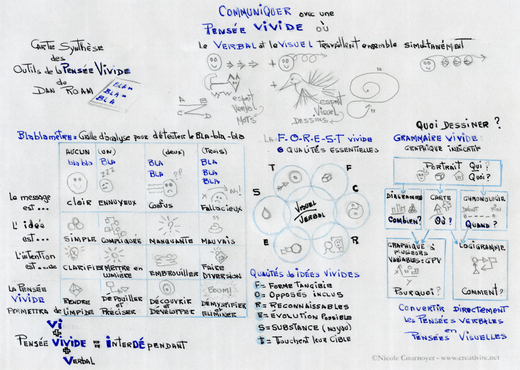 COMMUNIQUER avec une
PENSÉE VIVIDE où
le VERBAL et le VISUEL travaillent ensemble simultanément
CARTE SYNTHÈSE
des
OUTILS de la PENSÉE VIVIDE
de
DAN ROAM
BLA =
BLA =
BLA
esprit
Verbal
MOTS
esprit
Visuel
DESSINS
Blablamètre = Grille d'analyse pour détecter le Bla-bla-bla
AUCUN (UN) (deux) (TROIS)
blabla BLA BLA BLA
BLA BLA
BLA
Le message
est...
Clair ENNUYEUX Confus Fallacieux
L'idée
est...
SIMPLE COMPLIQUÉE MANQUANTE MAUVAIS
L'intention
est...de
CLARIFIER METTRE en LUMIÈRE EMBROUILLER FAIRE DIVERSION
La PENSÉE
VIVIDE
PERMETTRA de
RENDRE LIMPIDE DÉPOUILLER et PRÉCISER DÉCOUVRIR et DÉVELOPPER DÉMYSTIFIER et ÉLIMINER
BOUM!
Vi
+
PENSÉE VIVIDE = INTERDÉPENDANT
+
Verbal
La F-O-R-E-S-T VIVIDE
6 QUALITÉS ESSENTIELLES
T F
S O
E R
VISUEL
VERBAL
QUALITÉS des IDÉES VIVIDES
F = FORME TANGIBLE
O = OPPOSÉS INCLUS
R = RECONNAISSABLES
E = ÉVOLUTION POSSIBLE
S = SUBSTANCE (noyau)
T = Touchent leur CIBLE
QUOI DESSINER ?
GRAMMAIRE VIVIDE :
GRAPHIQUE INDICATIF
PORTRAIT Qui ?
Quoi ?
DIAGRAMME CARTE CHRONOLOGIE
Combien? Où ? QUAND ?
GRAPHIQUE à
PLUSIEURS
VARIABLES = GPV
POURQUOI ?
LOGIGRAMME
COMMENT ?
CONVERTIR DIRECTEMENT
les PENSÉES VERBALES
en
PENSÉES VISUELLES
©Nicole Cournoyer - www.creativite.net